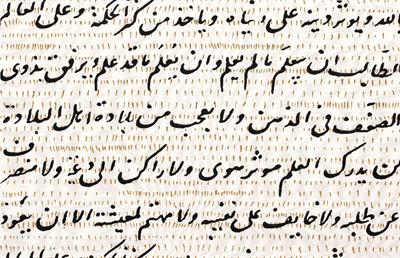 بالله ويوثر دينه على دنياه وياخذ من كل حكمة وعلى العالم
الطالب ان يتعلم ما لم يعلم وان يعلم ما قد علم ويرفق بذوي
الضعف في الذهن ولا يعجب من بلادة اهل البلادة
لن يدرك العلم موثر هوى ولا راكن الى دعة ولا منصرف
عن طلبه ولا خايف على نفسه ولا مهتم لمعيشة الا ان يعوذ